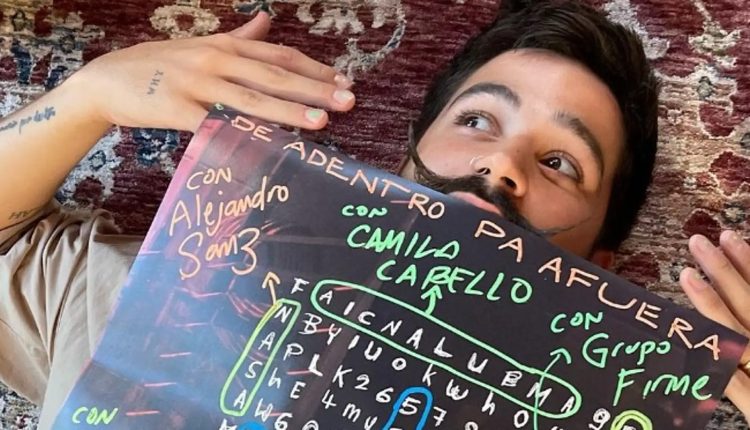 DE ADENTRO PA AFUERA
CON
Alejandro
Sanz
CON
CAMILA
CABELLO
CON
Grupo
Firme
CON
F A I C N A L U B M A g
N B Y I U O K W h O
A P L K 2 6 5 7
S h E 4 m y
A W 6